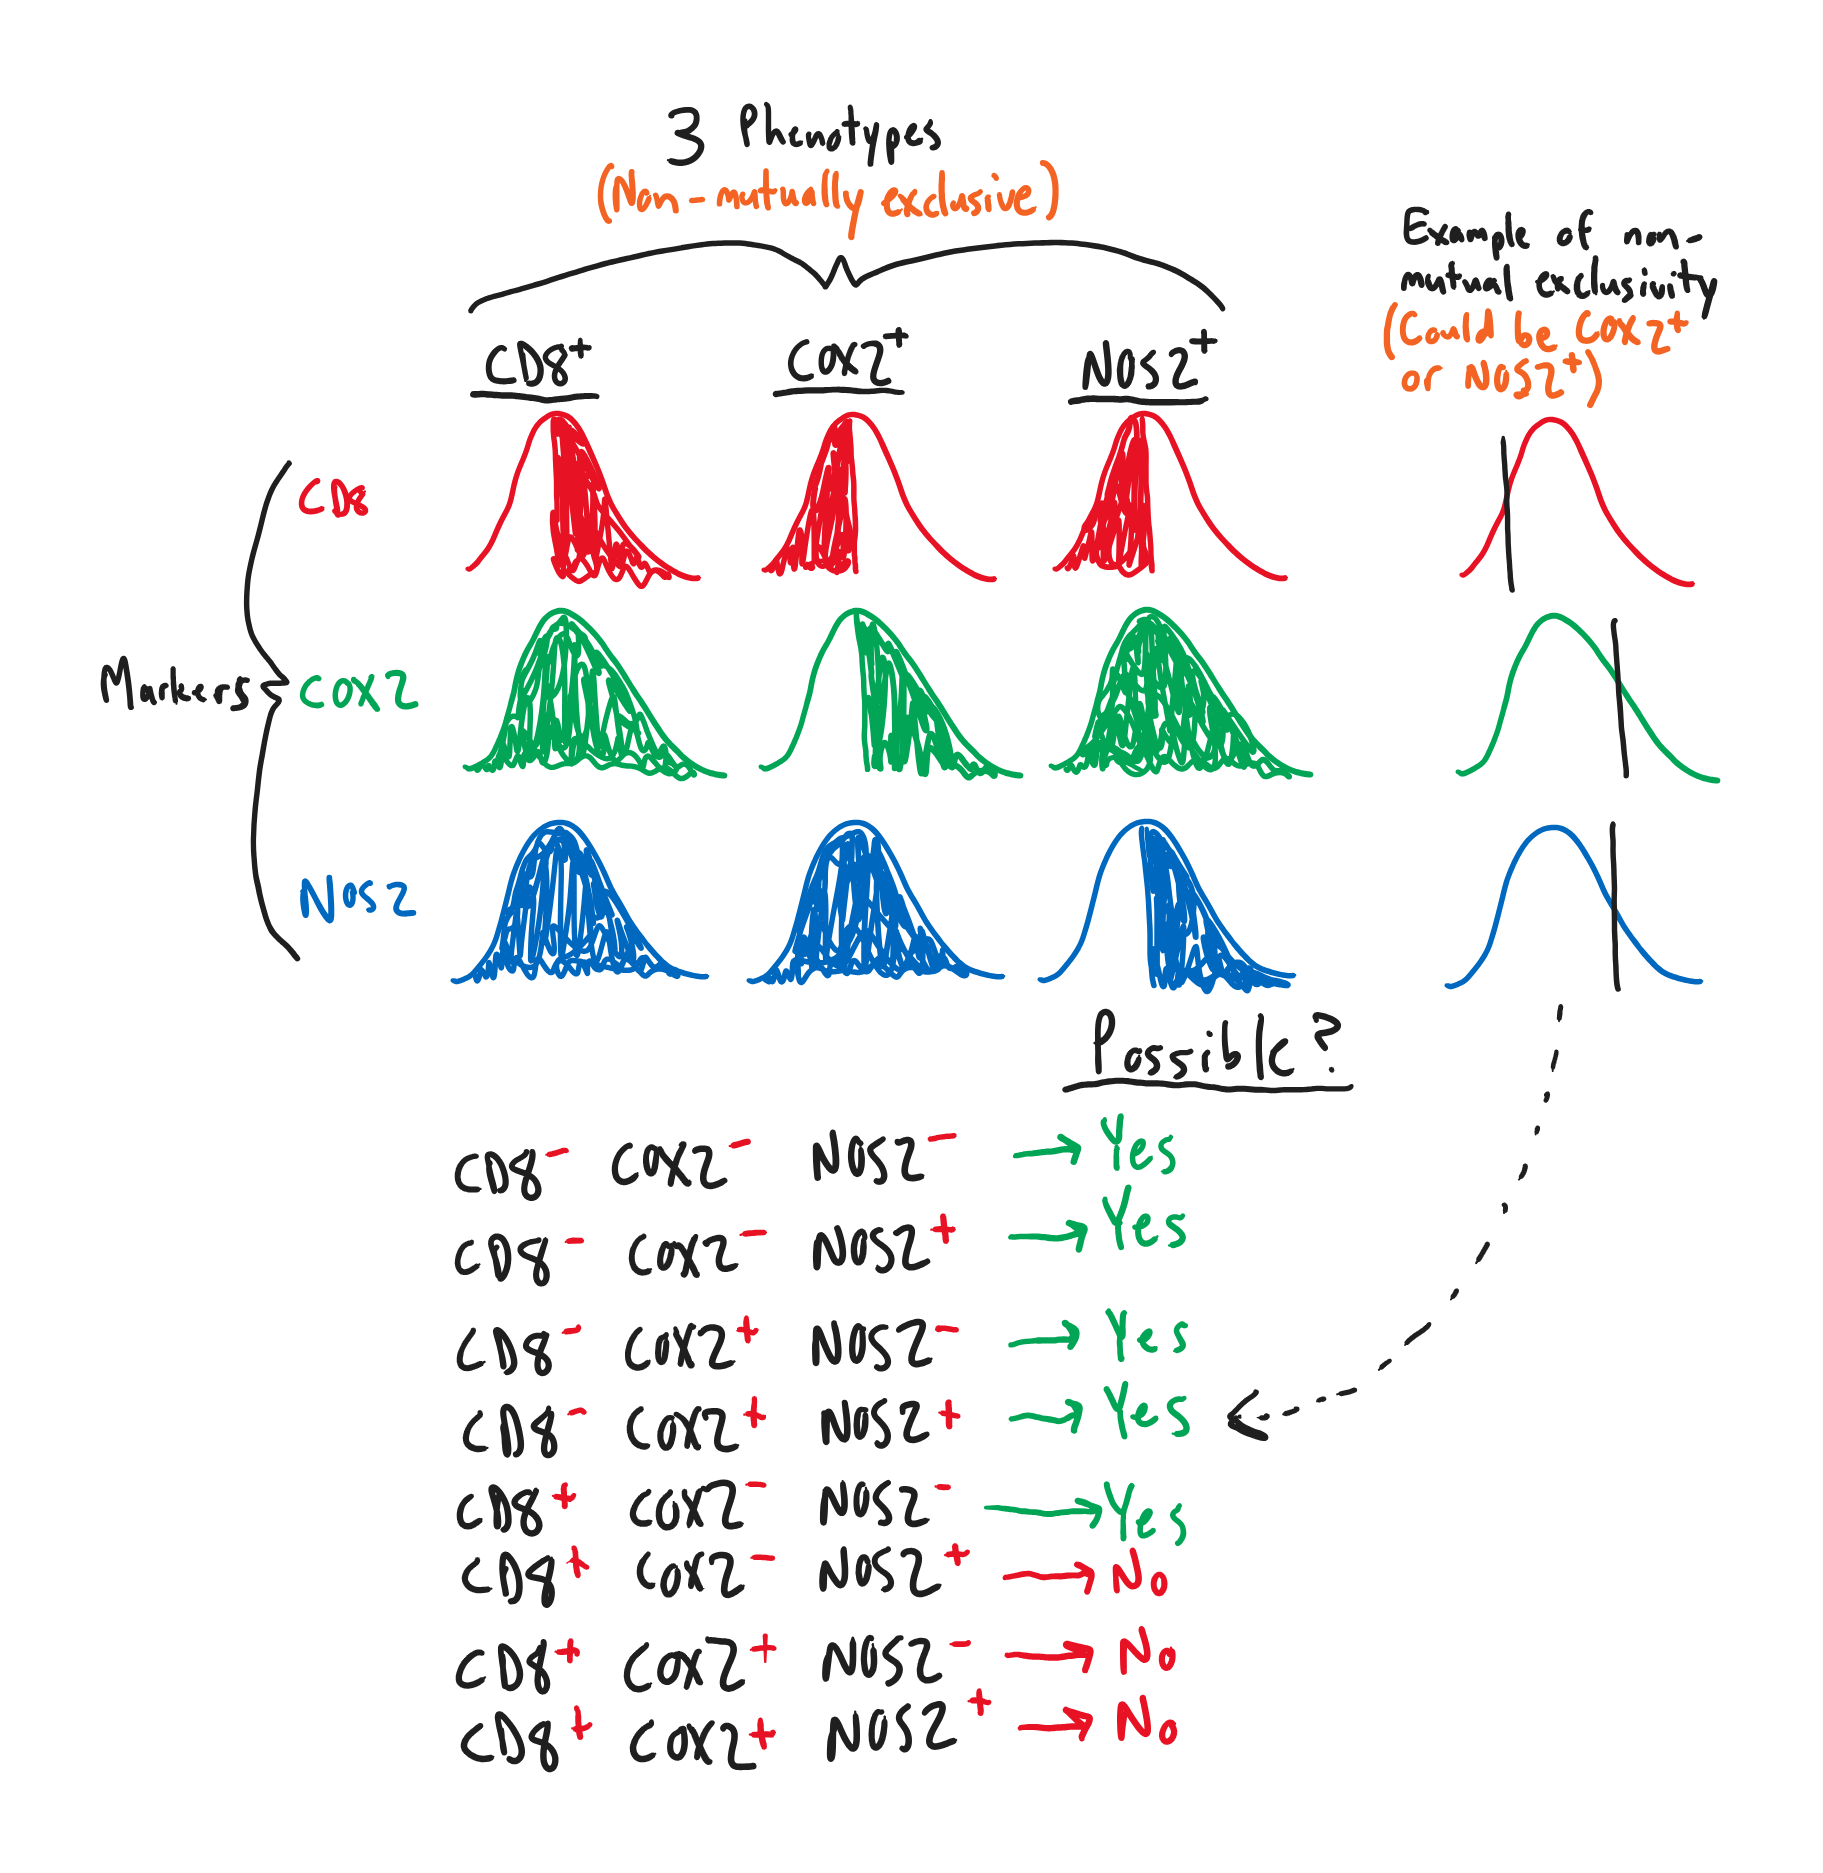 3 Phenotypes
(Non-mutually exclusive)
Example of non-
mutual exclusivity
(Could be COX2+
or NOS2+)
CD8+ COX2+ NOS2+
CD8
Markers COX2
NOS2
Possible?
CD8- COX2- NOS2- → Yes
CD8- COX2- NOS2+ → Yes
CD8- COX2+ NOS2- → Yes
CD8- COX2+ NOS2+ → Yes
CD8+ COX2- NOS2- → Yes
CD8+ COX2- NOS2+ → No
CD8+ COX2+ NOS2- → No
CD8+ COX2+ NOS2+ → No